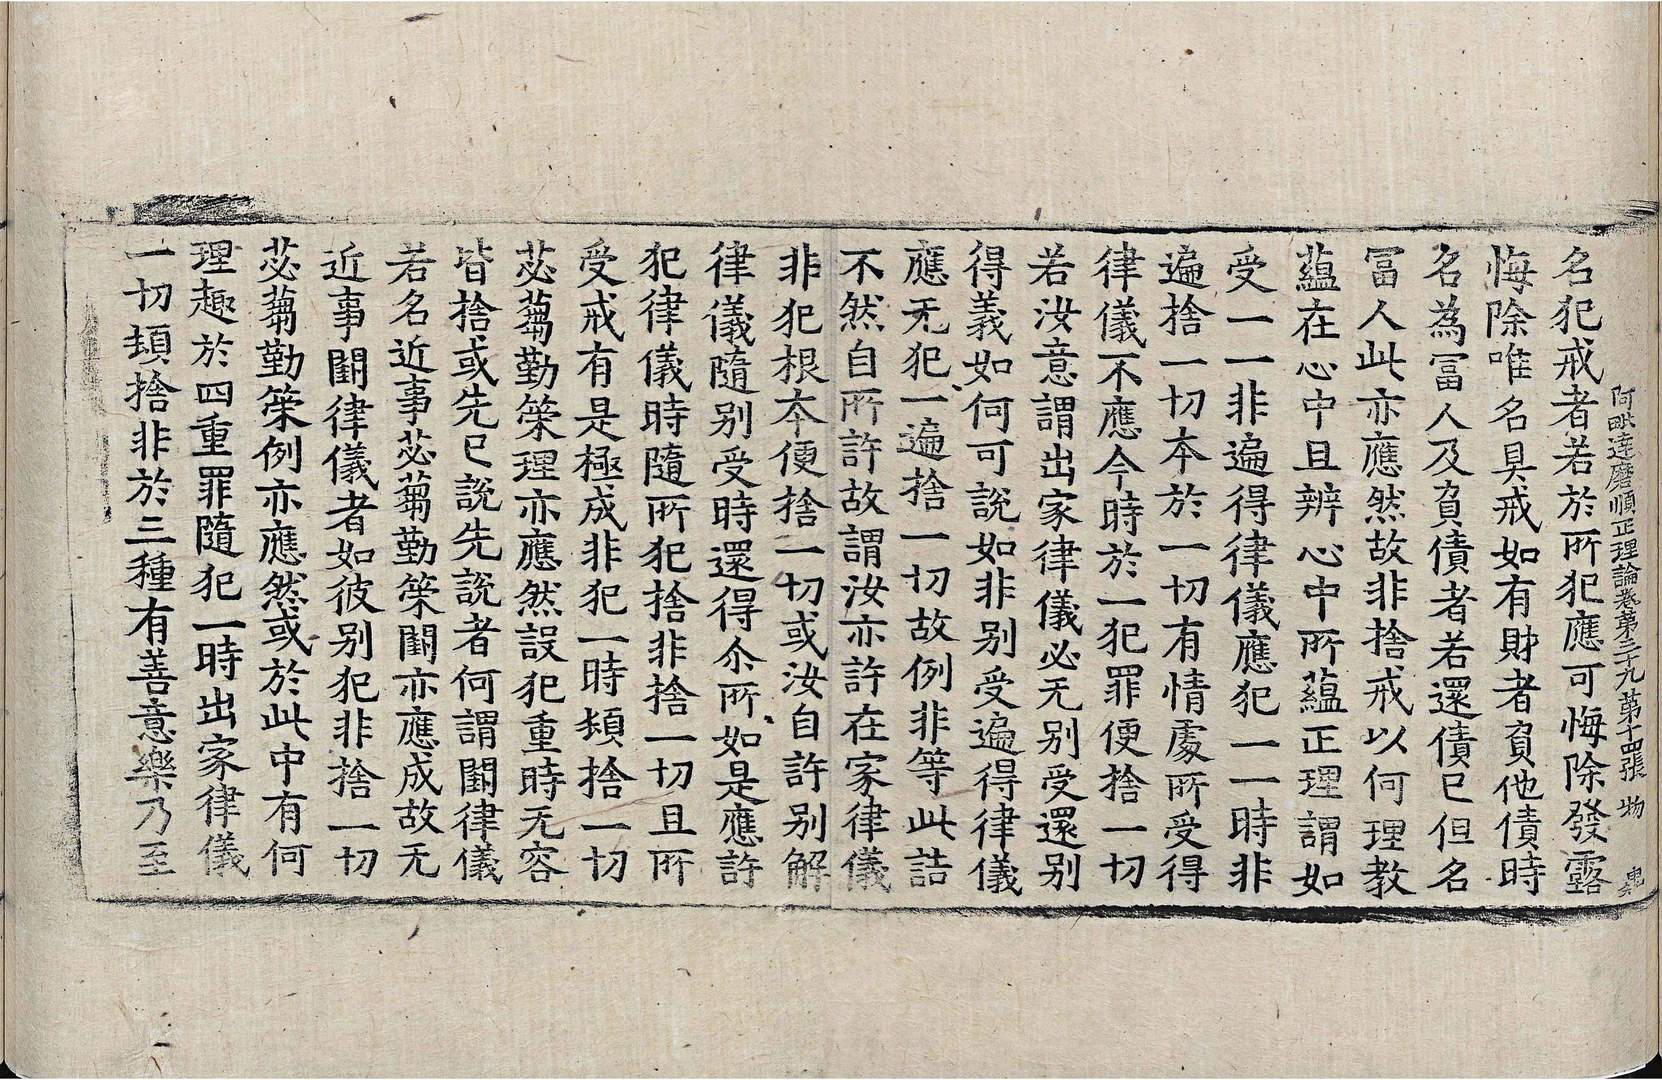 阿毗達磨順正理論卷第三十九 第十四張 物
名犯戒者若於所犯應可悔除發露
悔除唯名具戒如有財者負他債時
名為冨人及負債者若還債已但名
冨人此亦應然故非捨戒以何理教
蘊在心中且辨心中所蘊正理謂如
受一一非遍得律儀應犯一一時非
遍捨一切本於一切有情處所受得
律儀不應今時於一犯罪便捨一切
若汝意謂出家律儀必无別受還別
得義如何可說如非別受遍得律儀
應无犯一遍捨一切故例非等此詰
不然自所許故謂汝亦許在家律儀
非犯根本便捨一切或汝自許別解
律儀隨別受時還得尒所如是應許
犯律儀時隨所犯捨非捨一切且所
受戒有是極成非犯一時頓捨一切
苾蒭勤策理亦應然設犯重時无容
皆捨或先已說先說者何謂闕律儀
若名近事苾蒭勤策闕亦應成故无
近事闕律儀者如彼別犯非捨一切
苾蒭勤策例亦應然或於此中有何
理趣於四重罪隨犯一時出家律儀
一切頓捨非於三種有善意樂乃至